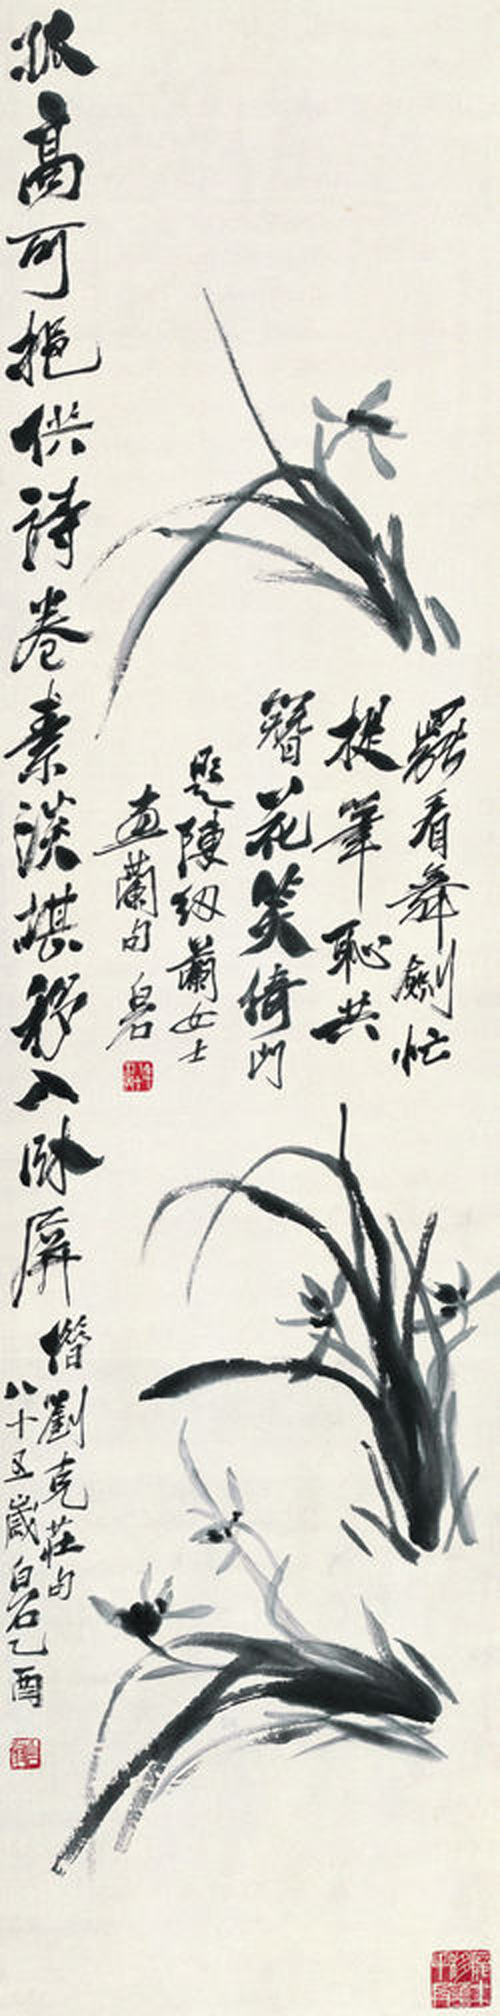 罷看舞劍忙
提筆恥共
簪花笑倚門
題陳紉蘭女士
畫蘭句 白石
孤高可挹供詩卷素淡堪移入卧屏
劉克莊句
八十五歲白石乙酉